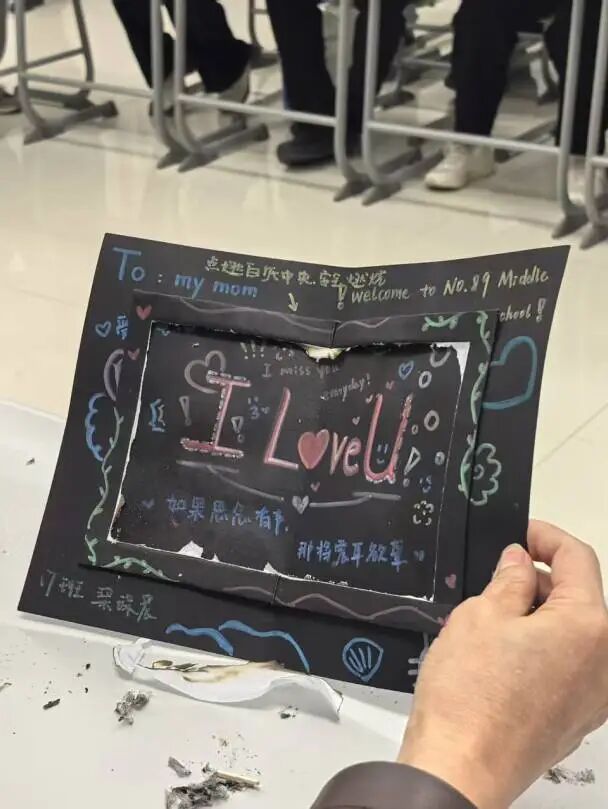 To : my mom
点燃白纸中央,安全燃烧
! Welcome to No.89 Middle
school!
爱
!!!
I miss you
everyday!
I Love U
如果思念有声,
那将震耳欲聋
17班